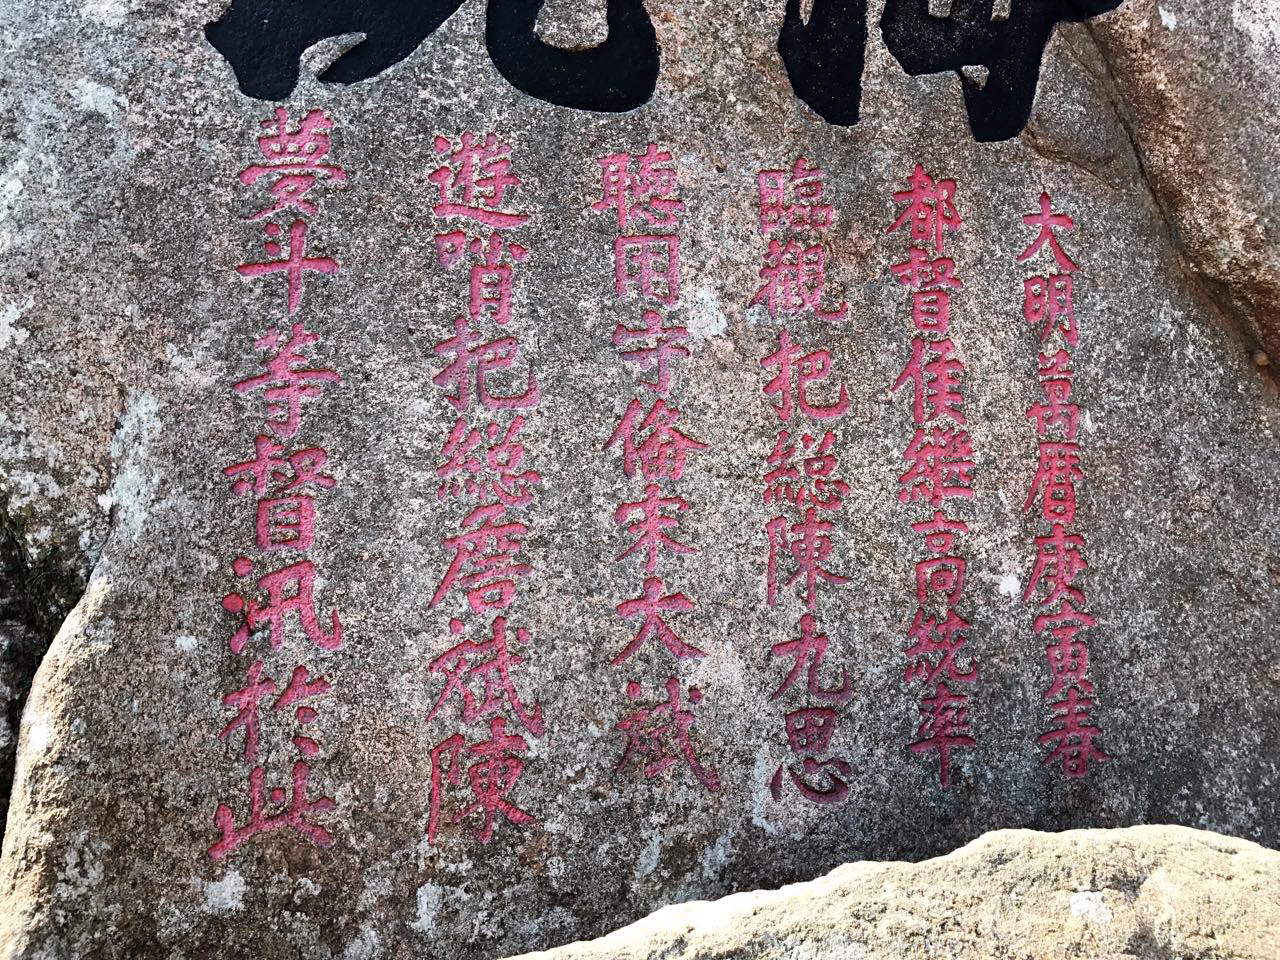 大明萬曆庚寅春
都督侯繼高統率
臨觀把總陳九思
聽用守備宋大斌
遊哨把總詹斌陳
夢斗等督汛於此